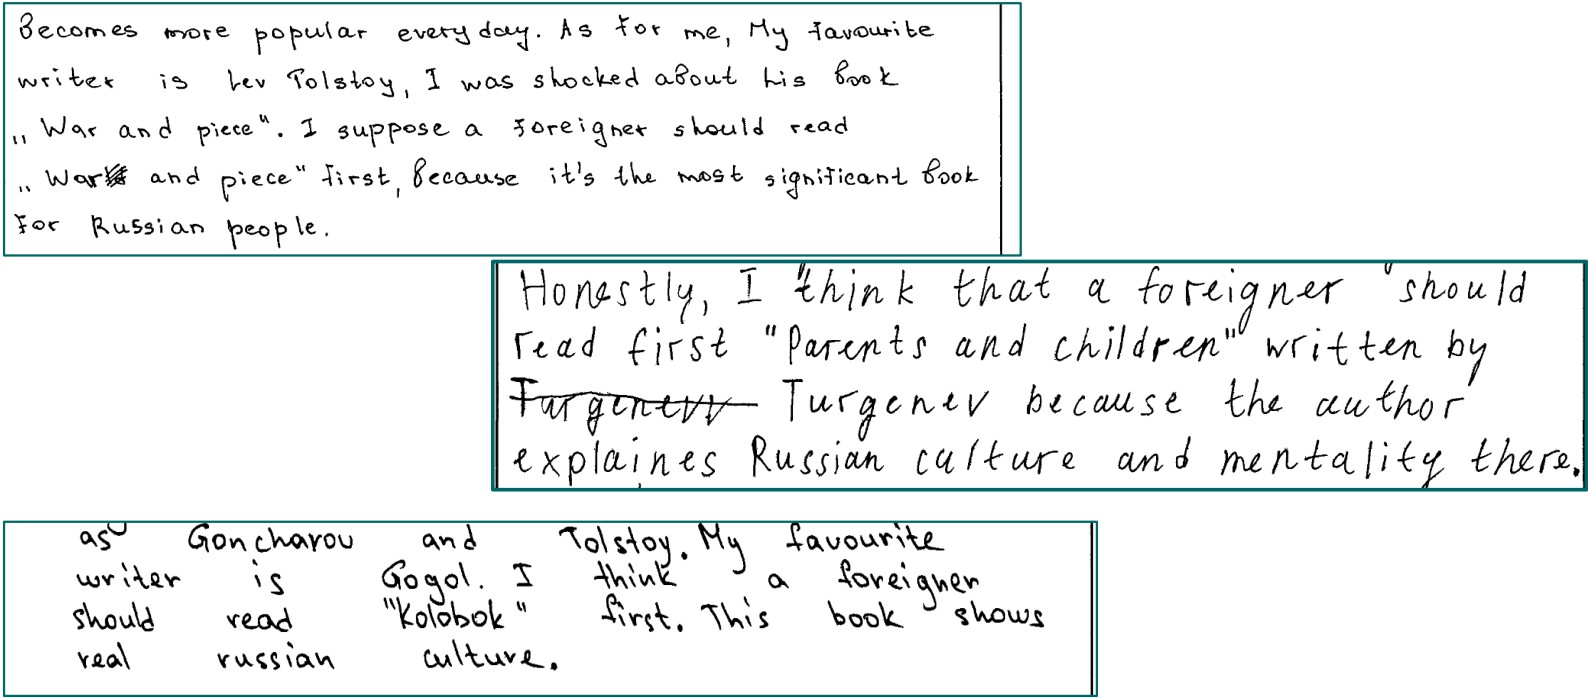 Becomes more popular everyday. As for me, My favourite
writer is Lev Tolstoy, I was shocked about his book
„War and piece". I suppose a foreigner should read
„War and piece" first, because it's the most significant book
for Russian people.
Honestly, I think that a foreigner should
read first "Parents and children" written by
Turgenev because the author
explaines Russian culture and mentality there.
as Goncharov and Tolstoy. My favourite
writer is Gogol. I think a foreigner
should read "Kolobok" first. This book shows
real russian culture.